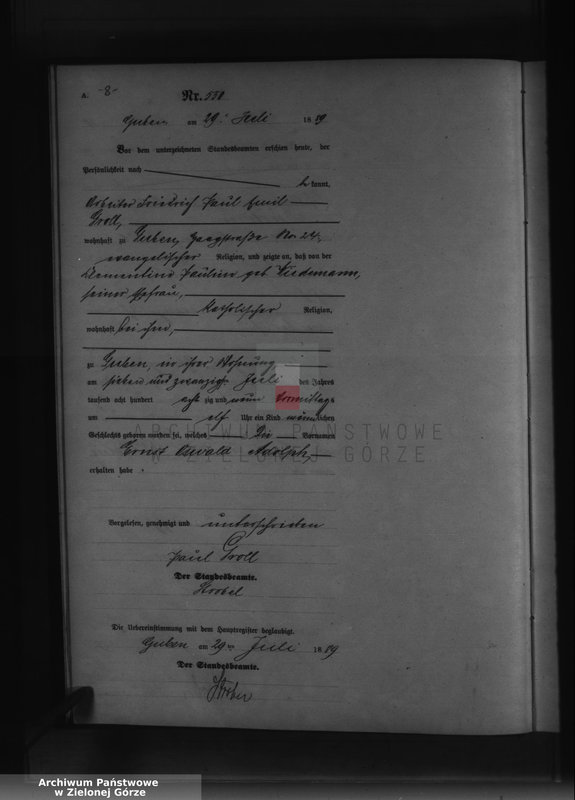 A. -8-
Nr. 538
Guben am 29. Juli 1889
Vor dem unterzeichneten Standesbeamten erschien heute, der
Persönlichkeit nach
bekannt,
Arbeiter Friedrich Paul Emil
Groll,
wohnhaft zu Guben, No 24,
evangelischer Religion, und zeigte an, daß von der
Clementine Pauline geb. Wiedemann,
seiner Ehefrau,
katholischer Religion,
wohnhaft bei ihm,
zu Guben, in ihrer Wohnung
am sieben und zwanzigsten Juli des Jahres
tausend acht hundert acht zig und neun Vormittags
um elf Uhr ein Kind männlichen
Geschlechts geboren worden sei, welches Die Vornamen
Ernst Oswald Adolph,
erhalten habe.
ARCHIWUM PAŃSTWOWE
W ZIELONEJ GÓRZE
Vorgelesen, genehmigt und unterschrieben
Paul Groll
Der Standesbeamte.
Die Uebereinstimmung mit dem Hauptregister beglaubigt.
Guben am 29ten Juli 1889
Der Standesbeamte.
Archiwum Państwowe
w Zielonej Górze